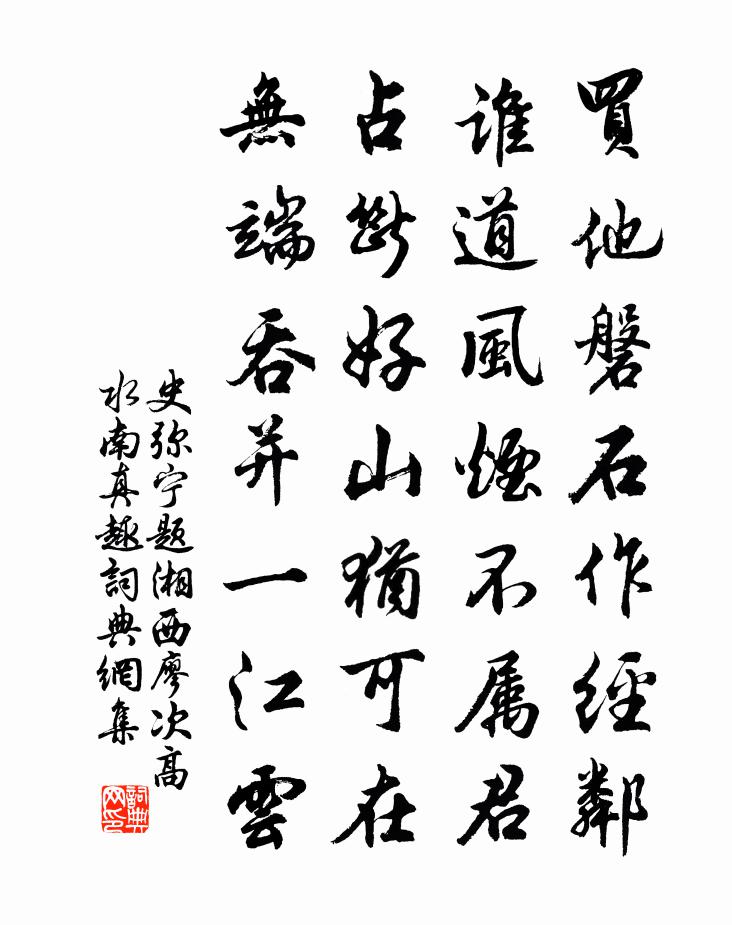 買他磐石作經鄰
誰道風煙不属君
占斷好山猶可在
無端吞并一江雲
史弥宁题湘西廖次高
水南真趣詞典網集
詞典
网印